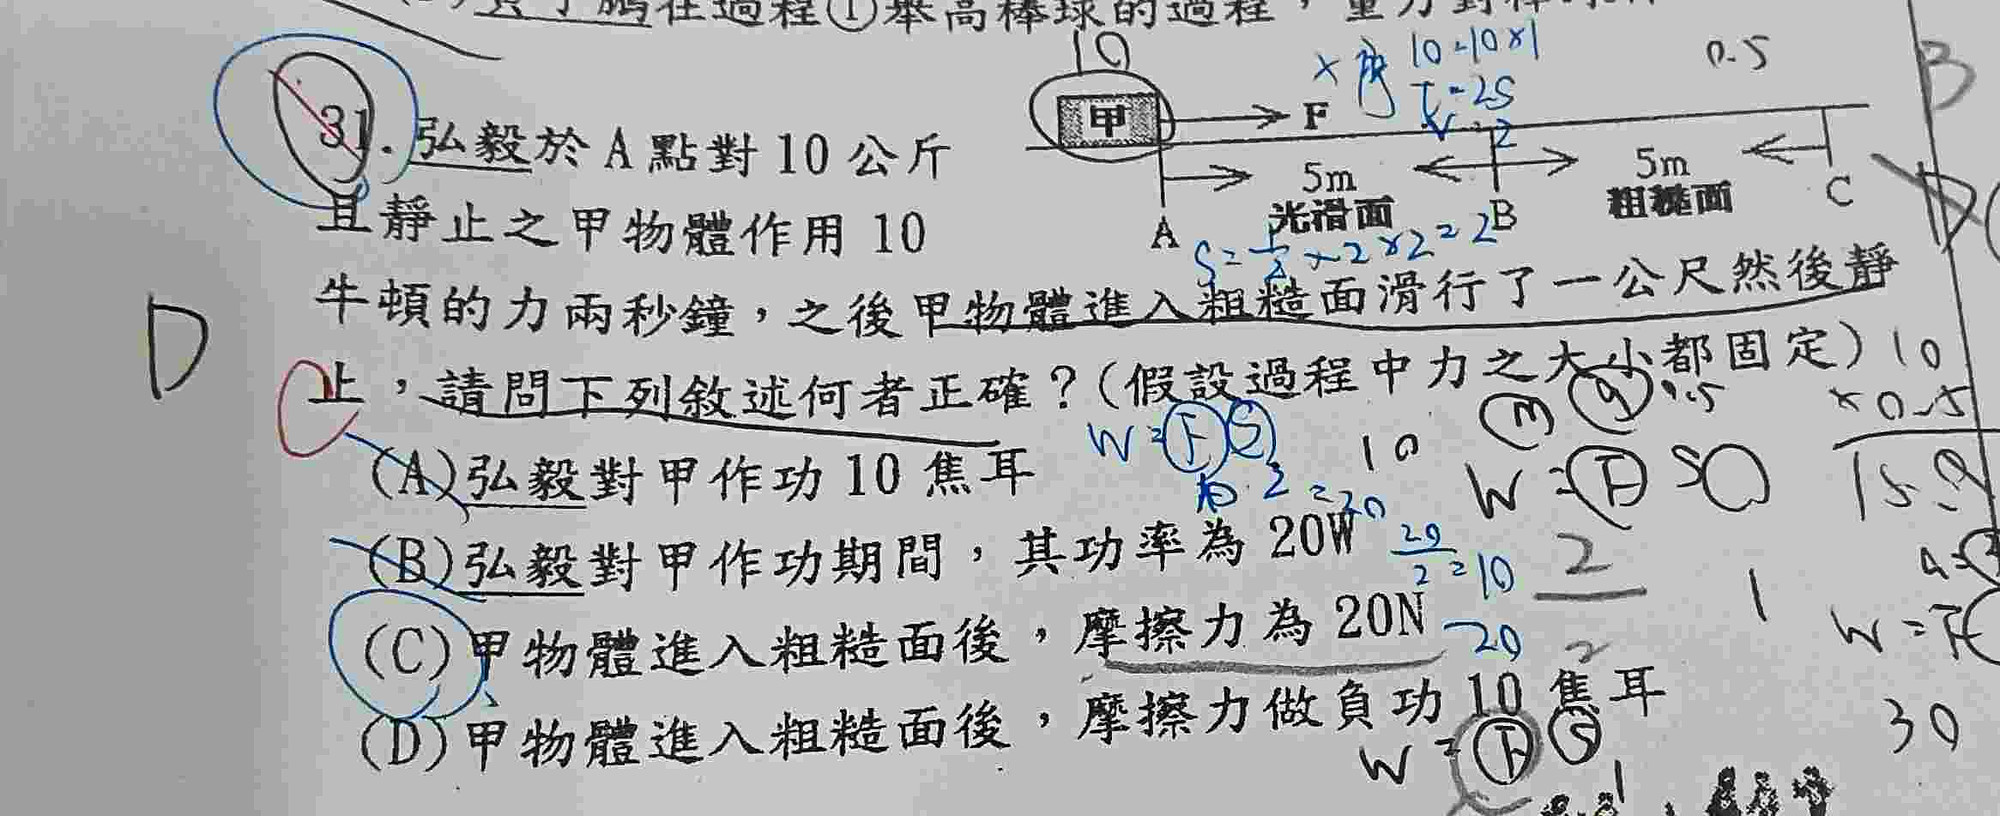 在過程①舉高棒球的過程，重力對棒
10
甲
F
× 10=10×1
T=2S
V=2
0.5
B
31. 弘毅於 A 點對 10 公斤
5m
5m
光滑面
粗糙面
A
B
C
且靜止之甲物體作用 10
S=½×2×2=2
牛頓的力兩秒鐘，之後甲物體進入粗糙面滑行了一公尺然後靜
D
止，請問下列敘述何者正確？(假設過程中力之大小都固定)
10
×0.5
W=FS
10
m
W=FS
(A)弘毅對甲作功 10 焦耳
10 2 =20
(B)弘毅對甲作功期間，其功率為 20W
20/2=10
2
1
W=F
(C)甲物體進入粗糙面後，摩擦力為 20N
20
2
(D)甲物體進入粗糙面後，摩擦力做負功 10 焦耳
W=FS
30
1